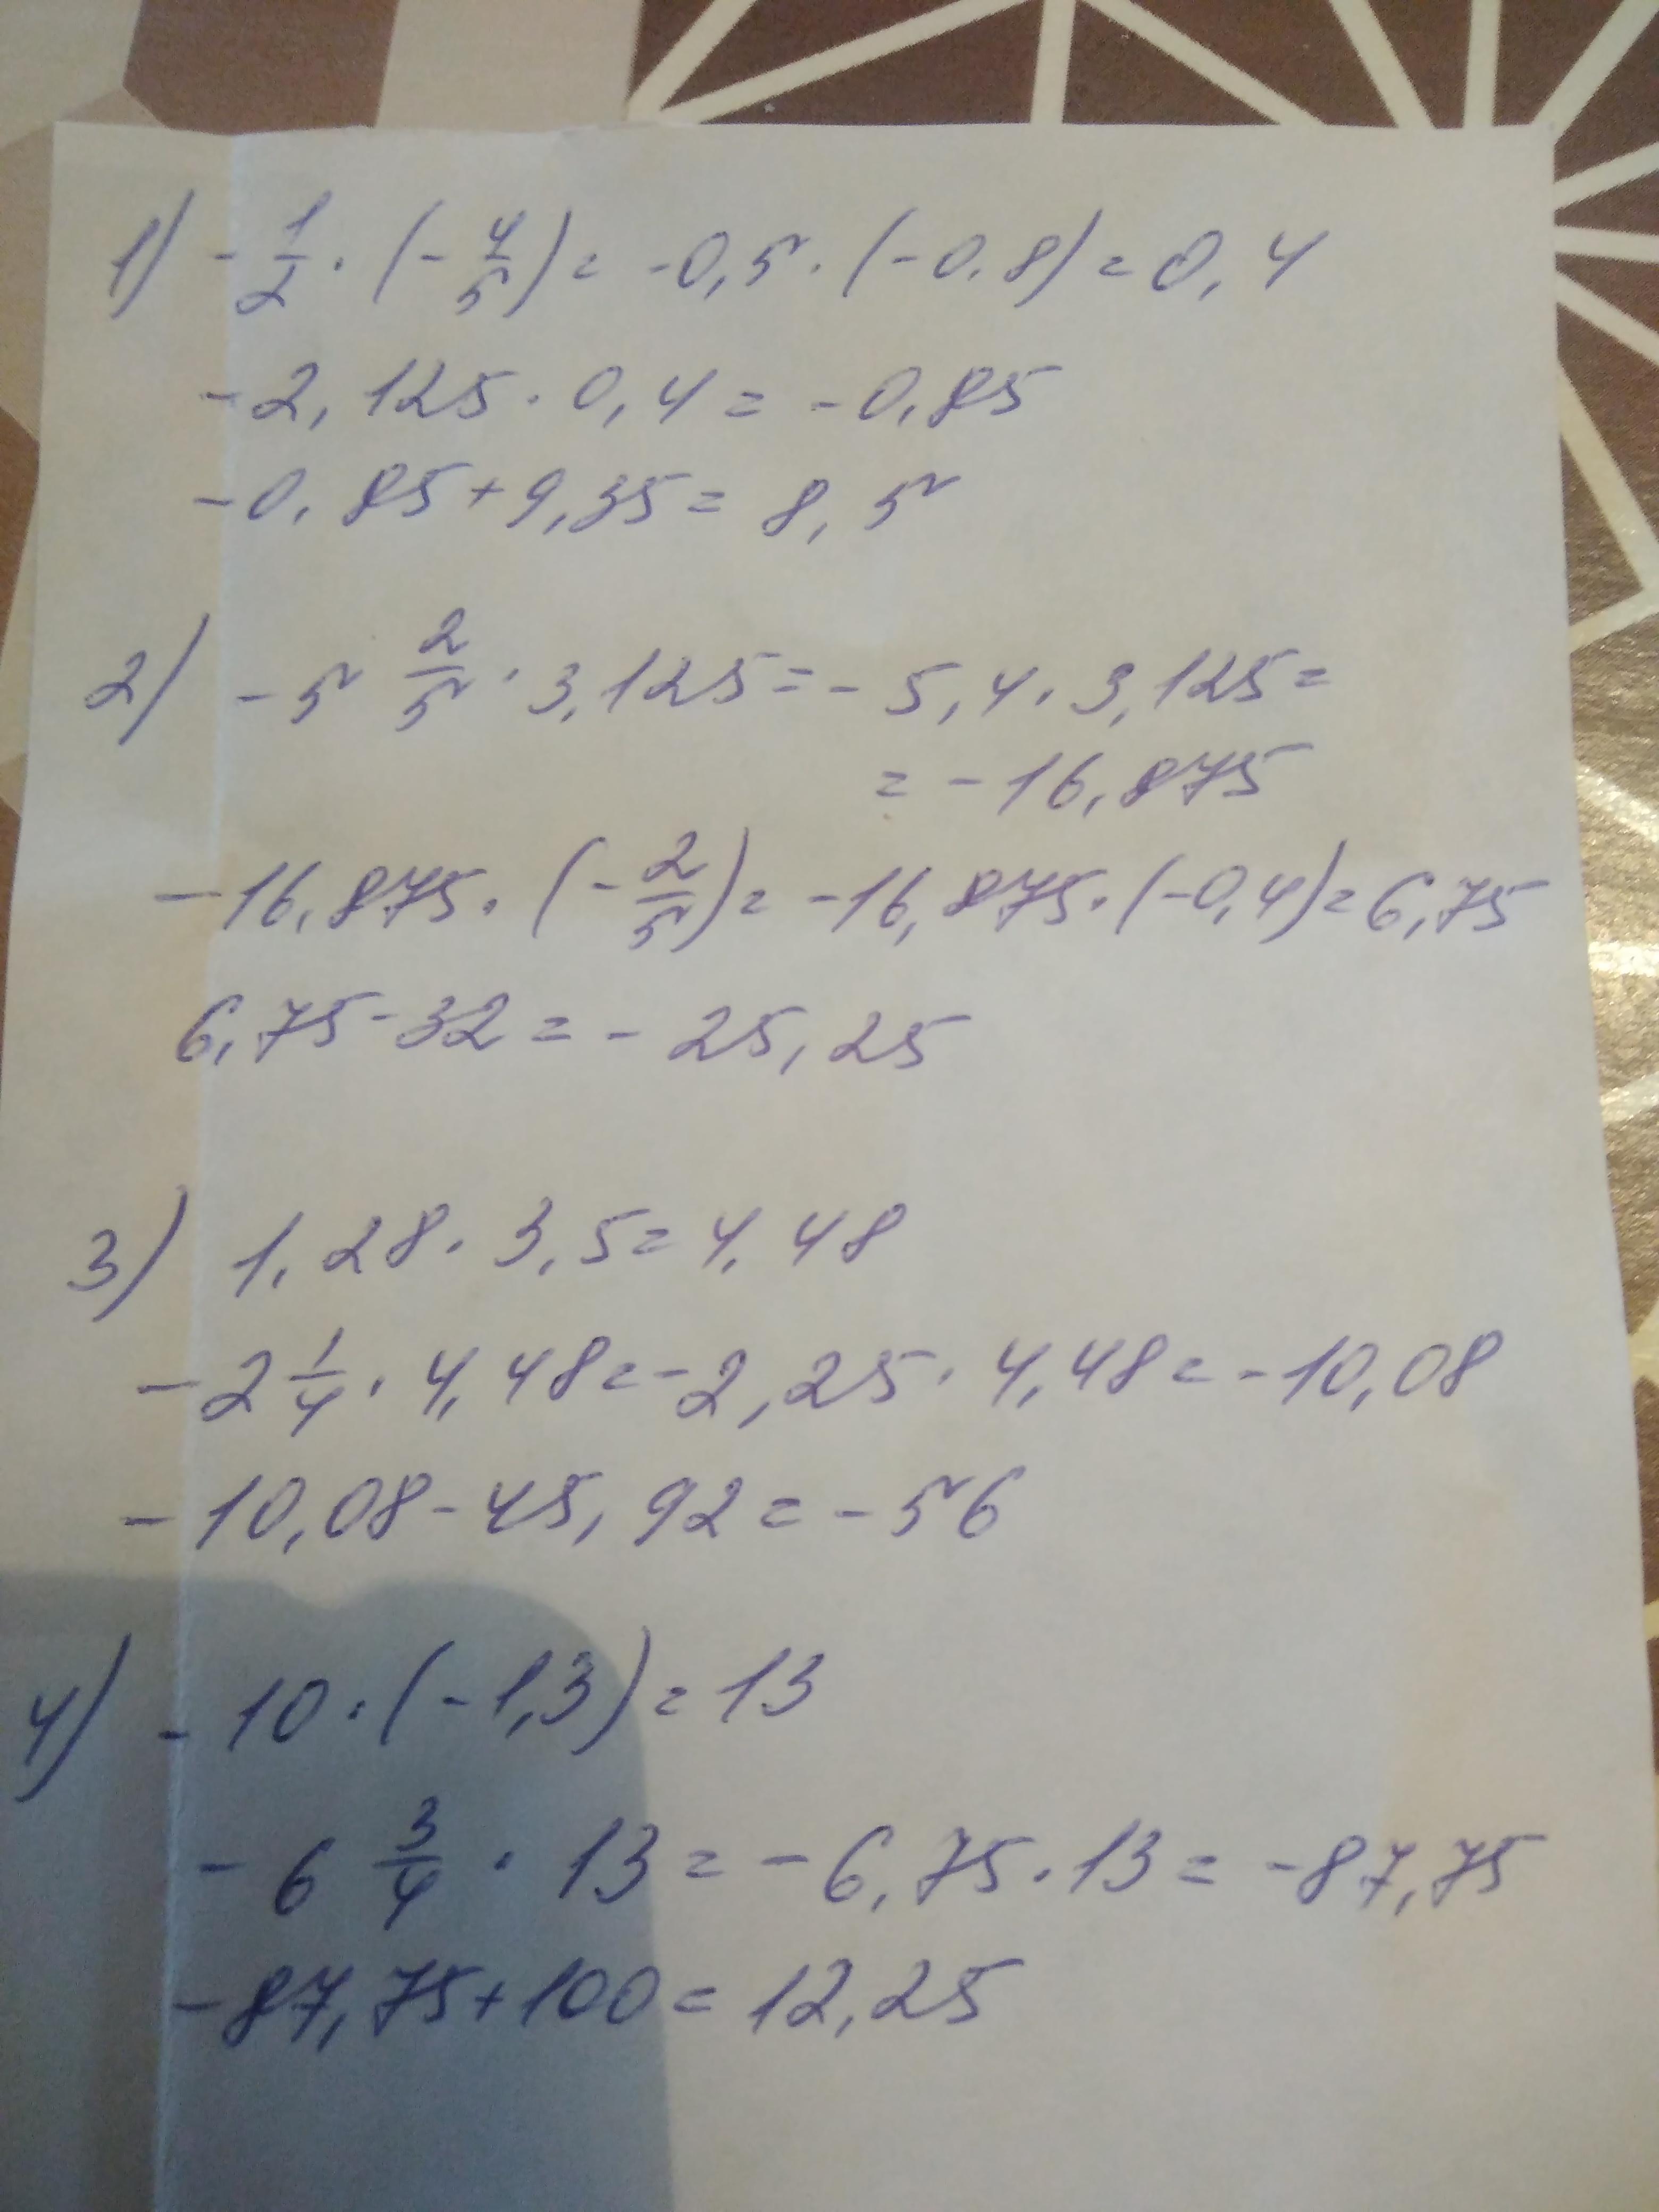 1) -1/2 · (-4/5) = -0,5 · (-0,8) = 0,4
-2,125 · 0,4 = -0,85
-0,85 + 9,35 = 8,5
2) -5 2/5 · 3,125 = -5,4 · 3,125 =
= -16,875
-16,875 · (-2/5) = -16,875 · (-0,4) = 6,75
6,75 - 32 = -25,25
3) 1,28 · 3,5 = 4,48
-2 1/4 · 4,48 = -2,25 · 4,48 = -10,08
-10,08 - 45,92 = -56
4) -10 · (-1,3) = 13
-6 3/4 · 13 = -6,75 · 13 = -87,75
-87,75 + 100 = 12,25